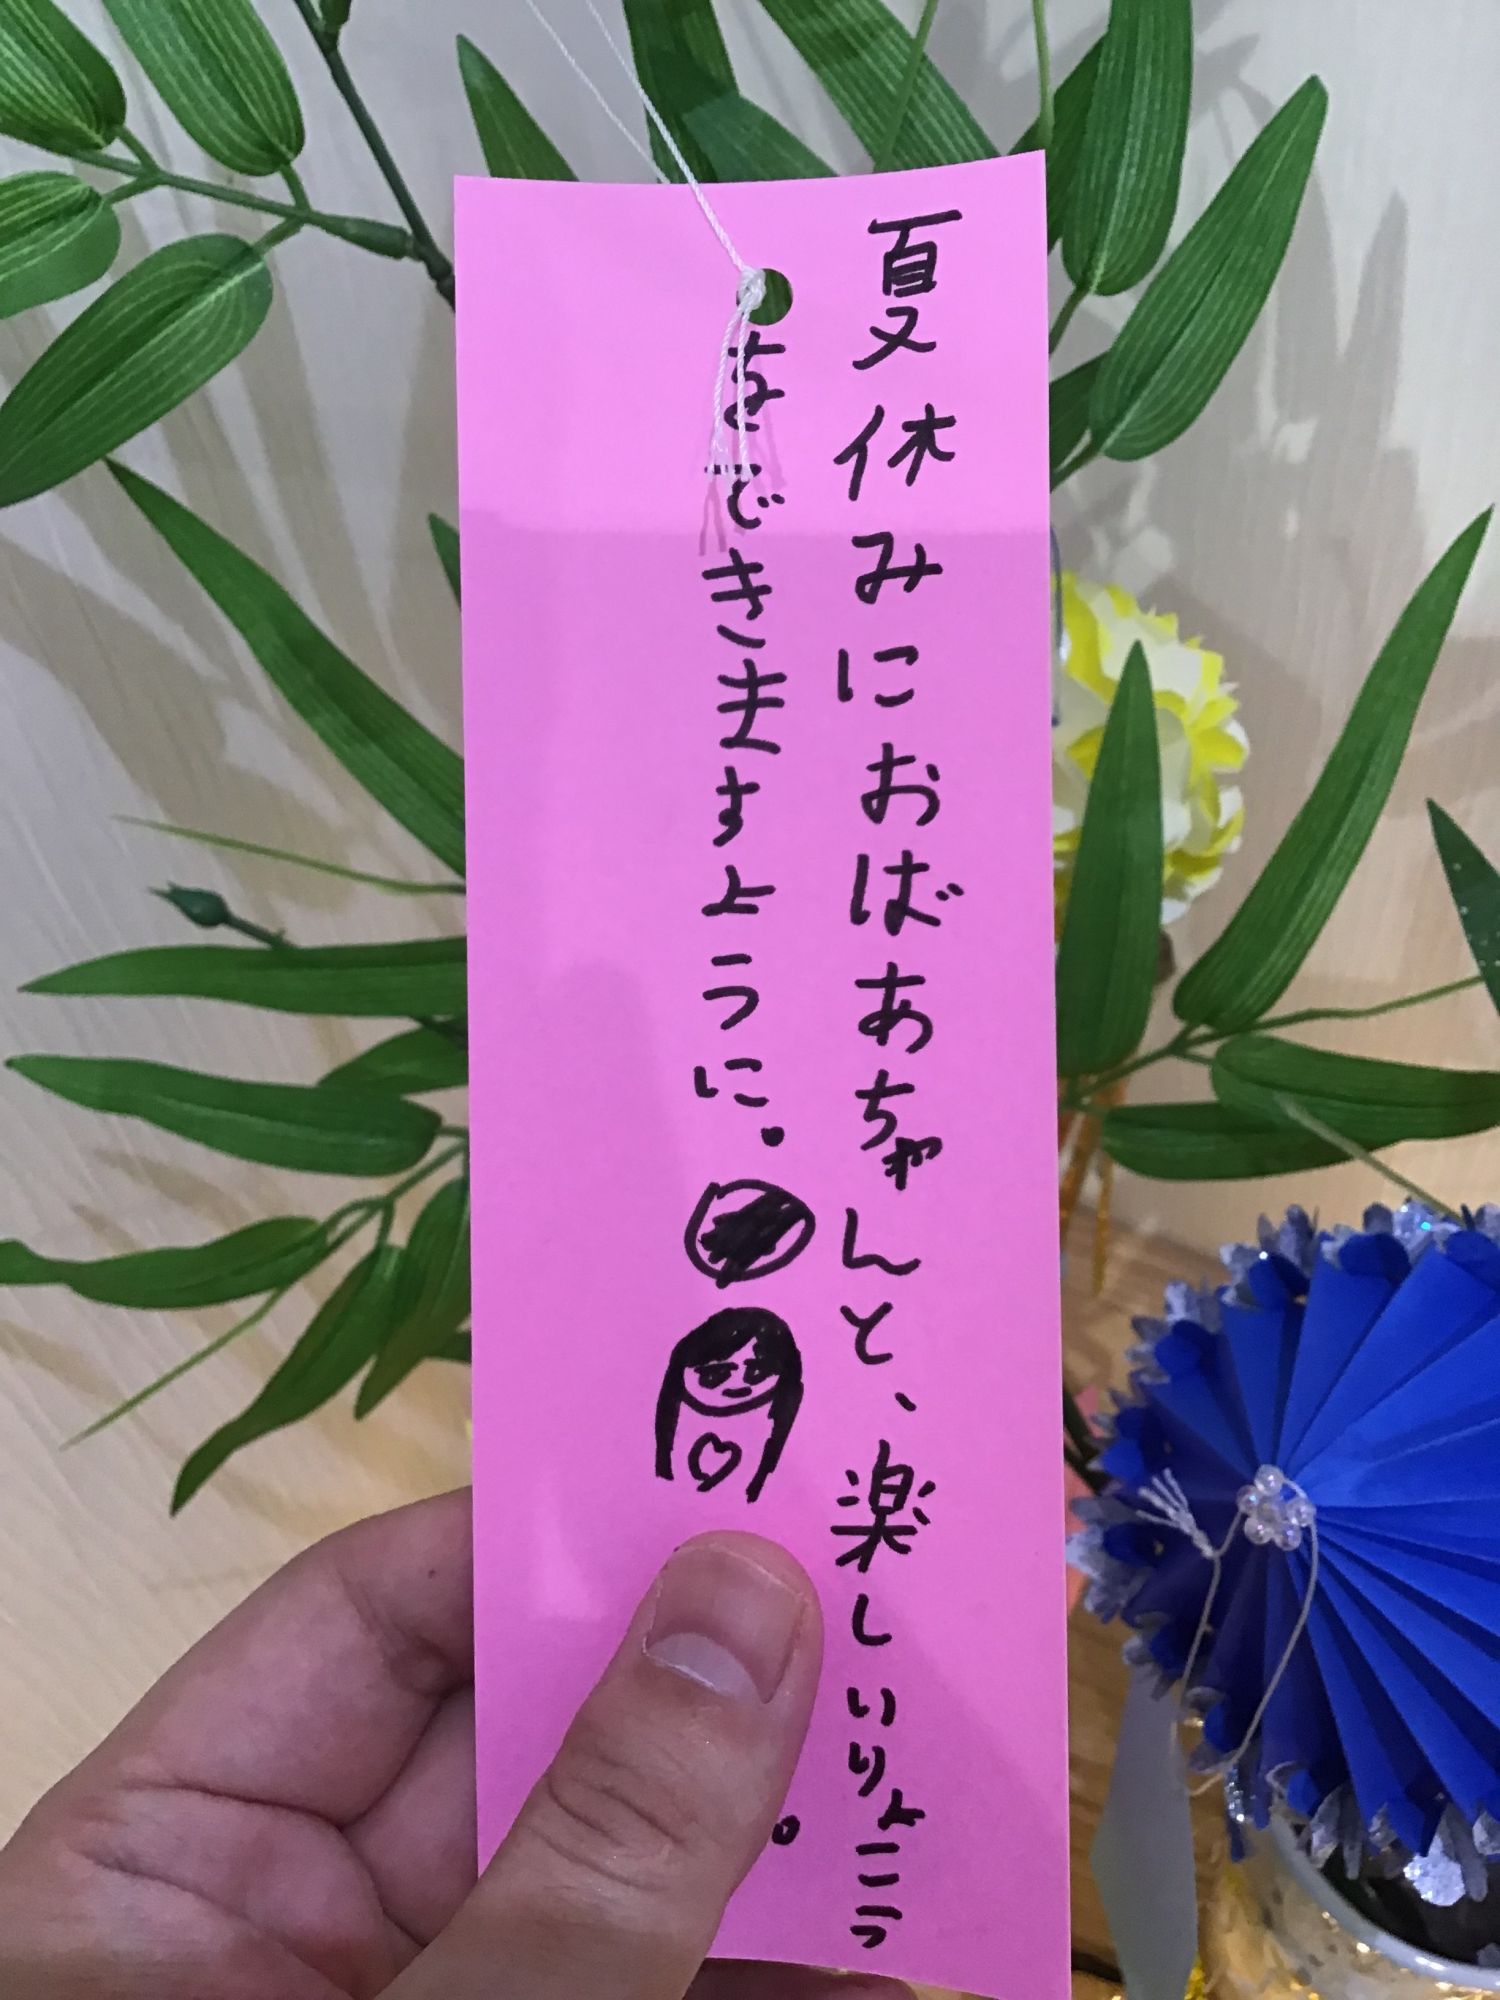 夏休みにおばあちゃんと、楽しいりょこう
をできますように。